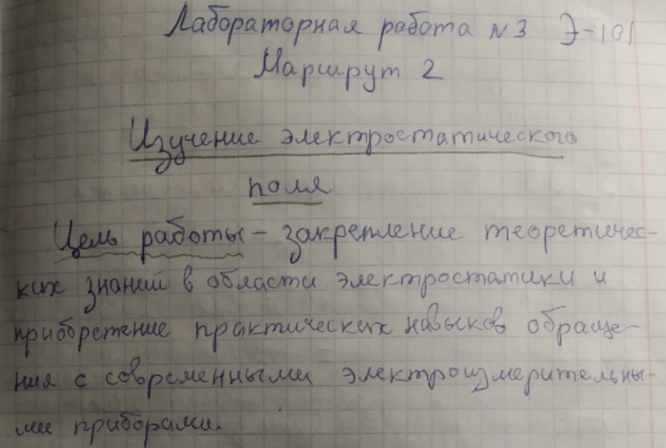 Лабораторная работа №3 Э-101
Маршрут 2
Изучение электростатического
поля
Цель работы – закрепление теоретичес-
ких знаний в области электростатики и
приобретение практических навыков обраще-
ния с современными электроизмерительны-
ми приборами.